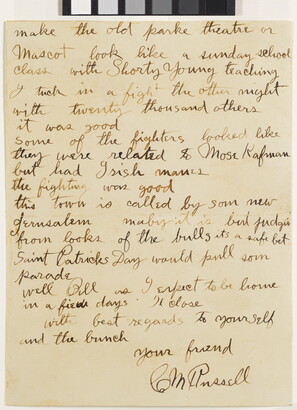 make the old parke theatre or
Mascot look like a sunday school
class with Shorty Young teaching
I tuck in a fight the other night
with twenty thousand others
it was good
some of the fighters looked like
they were related to Mose Kafman
but had Irish names
the fighting was good
this town is called by som new
Jerusalem maby it is but judgin
from looks of the bulls its a safe bet
Saint Patricks Day would pull som
parade
well Bill as I expect to be home
in a few days Il close
with best regards to yourself
and the bunch
your friend
CM Russell